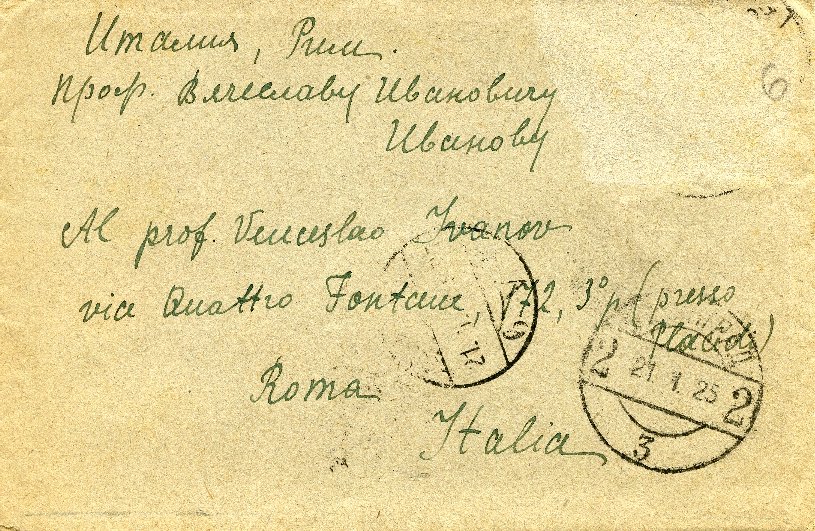 Италия, Рим.
Проф. Вячеславу Ивановичу
Иванову
Al prof. Venceslao Ivanov
via Quattro Fontane 172, 3° p (presso
Placidi)
Roma
Italia
2 21.1.25 2
3
6